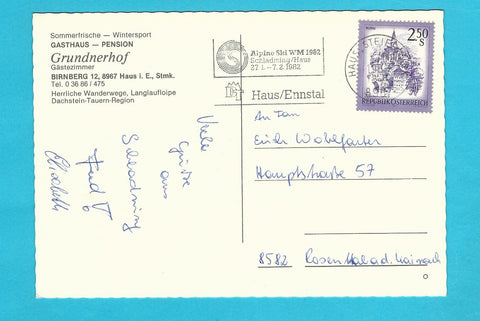 Sommerfrische — Wintersport
GASTHAUS — PENSION
Grundnerhof
Gästezimmer
BIRNBERG 12, 8967 Haus i. E., Stmk.
Tel. 0 36 86 / 475
Herrliche Wanderwege, Langlaufloipe
Dachstein-Tauern-Region
Alpine Ski WM 1982
Schladming/Haus
27.1.-7.2.1982
Haus/Ennstal
2.50
S
REPUBLIK ÖSTERREICH
Viele
Grüße
aus
Schladming
Elisabeth
An Fam
Erich Wohlfarter
Hauptstraße 57
8582 Rosental a.d. Kainach